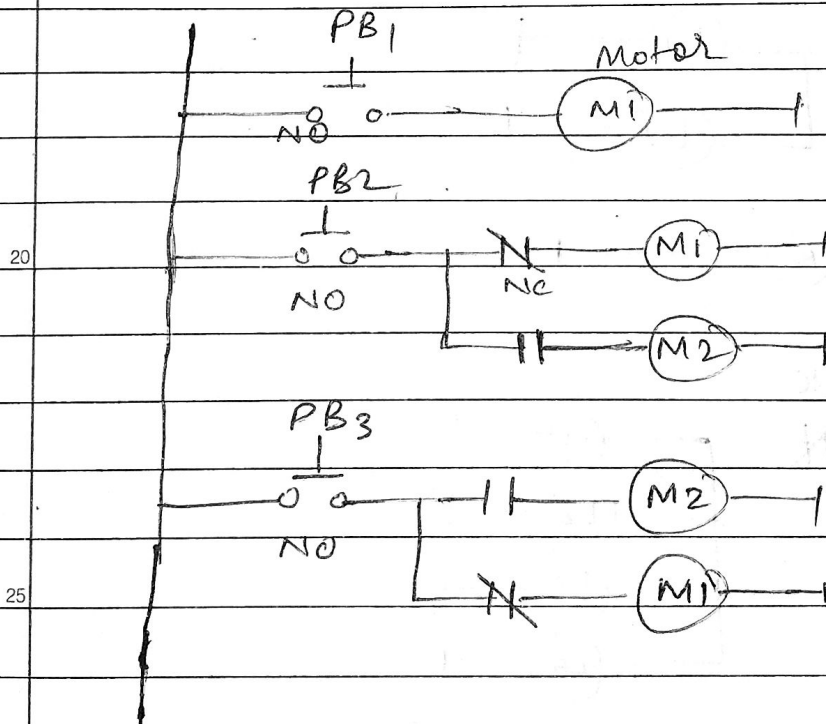 PB1
Motor
NO
M1
PB2
20
NO
NC
M1
M2
PB3
NO
M2
25
M1